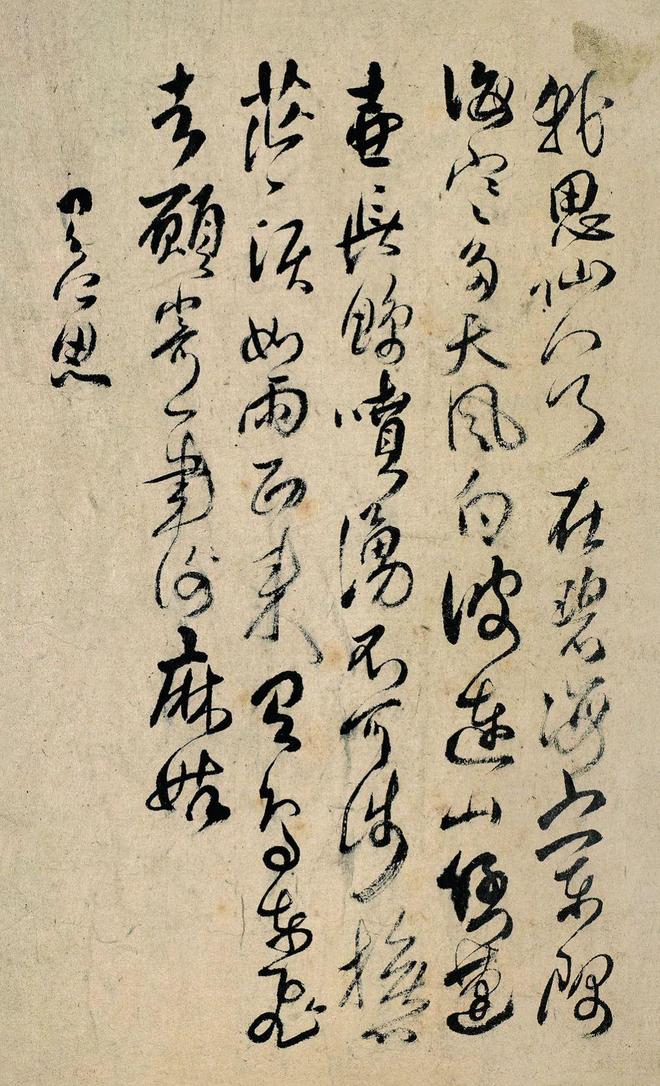 我思仙人乃在碧海之東隅
海寒多天風白波連山倒蓬
壺長鯨噴湧不可涉撫心
茫〻淚如雨西來青鳥東飛
去願寄一書謝麻姑
有所思